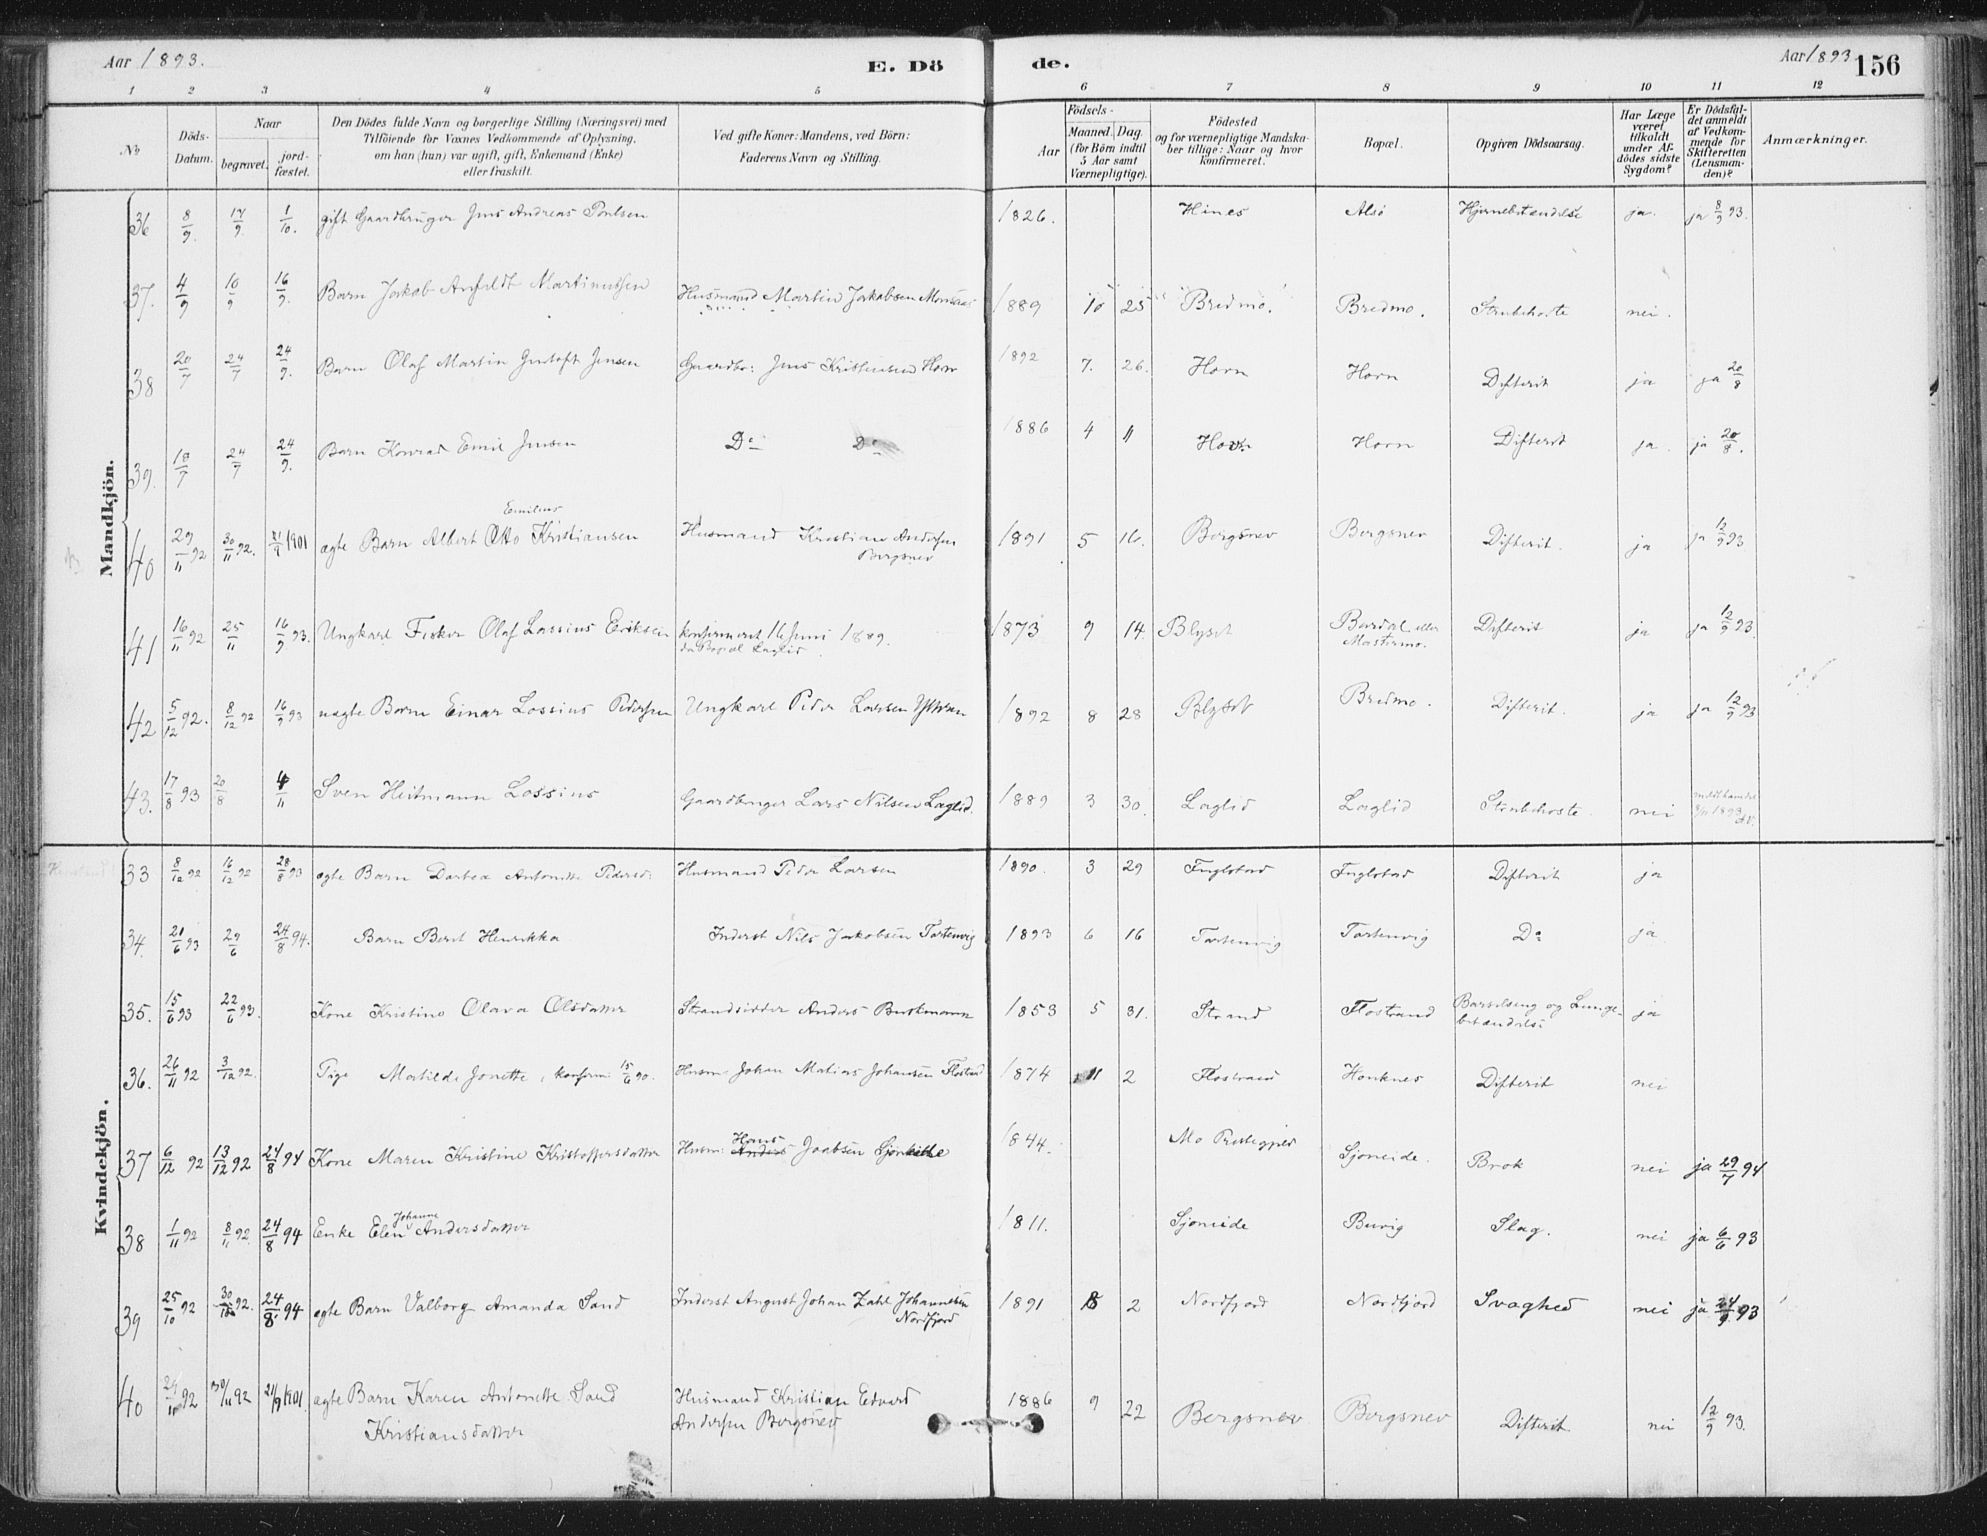 Aar 1893.
E. Dö
de.
Aar 1893
156
1 2 3 4 5 6 7 8 9 10 11 12
No
Döds-Datum.
Naar
begravet.
jord-fæstet.
Den Dödes fulde Navn og borgerlige Stilling (Næringsvei) med
Tilföiende for Voxnes Vedkommende af Oplysning,
om han (hun) var ugift, gift, Enkemand (Enke)
eller fraskilt.
Ved gifte Koner: Mandens, ved Börn:
Faderens Navn og Stilling.
Födsels-
Aar
Maaned. Dag.
(for Börn indtil
5 Aar samt
Værnepligtige).
Födested
og for værnepligtige Mandska-
ber tillige: Naar og hvor
konfirmeret.
Bopæl.
Opgiven Dödsaarsag.
Har Læge
været
tilkaldt
under Af-
dödes sidste
Sygdom?
Er Dödsfal-
det anmeldt
af Vedkom-
mende for
Skifteretten
(Lensman-
den)?
Anmærkninger.
Mandkjön.
36 8/9. 17/9. 1/10. gift Gaardbruger Jens Andreas Poulsen 1826. Hines Alsö Hjernebetændelse ja. ja 8/9 93.
37. 4/9 10/9 16/9. Barn Jakob Anfeldt Martinussen Husmand Martin Jakobsen 1889 10 25 Bredmo. Bredmo. Strubehoste nei.
38 20/7 24/7 24/9. Barn Olaf Martin Gustaft Jensen Gaardbr: Jens Kristensen Horn 1892 7. 26. Horn Horn Difterit ja ja 20/8
39. 18/7 24/7 24/9. Barn Konrad Emil Jensen Do Do 1886 4 11 Horn Horn Difterit ja. ja 20/8.
Emilius
40 29/11 92 30/11 92. 21/9 1901 ægte Barn Albert Otto Kristiansen Husmand Kristian Andersen 1891 5 16. Bergsnev Bergsnev Difterit. ja ja 12/9 93
Bergsnev
41 16/11 92 25/11 16/9 93. Ungkarl Fisker Olaf Lassius Eriksen konfirmeret 16 Juni 1889. 1873 9 14. Blyset Bardal eller Difterit ja ja 12/9 93.
da Bopæl Laglid
Mastermo.
42 5/12 92. 8/12 92 16/9 93 uægte Barn Einar Lossius Pedersen Ungkarl Peder Larsen 1892 8 28 Blyset Bredmo. Difterit. ja ja 12/9 93
43. 17/8 93 20/8 4/11 Sven Heitmann Lossius Gaardbruger Lars Nilsen Laglid. 1889 3 30. Laglid Laglid Strubehoste. nei
Kvindekjön.
33 8/12 92 16/12 92 28/8 93 ægte Barn Dortea Antonette Pedersd: Husmand Peder Larsen 1890. 3 29 Fuglstad Fuglstad Difterit ja
34. 21/6 93 29/6 24/8 94. Barn Berit Henrikka Inderst Nils Jakobsen Tortenvig 1893 6 16 Tortenvig Tortenvig Do ja
35. 15/6 93 22/6 93. Kone Kristine Olava Olsdatter Strandsidder Anders Buckmann 1853 5 31. Strand Flostrand Barselseng og Lunge- ja
betændelse
36. 26/11 92 3/12 92. Pige Matilde Jonette, konfirm: 15/6 90. Husm: Johan Matias Johansen Flostrand 1874 11 2 Flostrand Honknes Difterit nei
Hans
37 6/12 92 13/12 92 24/8 94 Kone Maren Kristine Kristoffersdatter Husm: Anders Joabsen 1844. Mo Prestegjeld Sjoneide. Brok nei ja 29/7 94
Johanne
38 1/11 92 8/11 92 24/8 94 Enke Elen Andersdatter 1811. Sjoneide Buvig Slag. nei ja 6/6 93
39 25/10 92 30/10 92. 24/8 94 ægte Barn Valborg Amanda Sand Inderst August Johan Zahl Johannesen 1891 8 2 Nordfjord Nordfjord Svaghed nei ja 24/9 93
Nordfjord
40 29/11 92 30/11 92 21/9 1901. ægte Barn Karen Antonette Sand Husmand Kristian Edvard 1886 9 22 Bergsnev Bergsnev Difterit nei 12/9 93.
Kristiansdatter Andersen Bergsnev